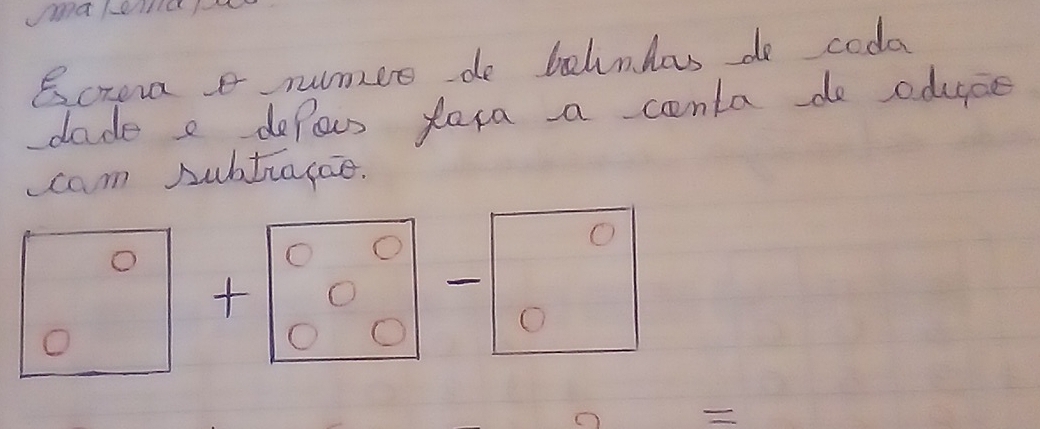 Escreva o numero de bolinhas de cada
dado e depois faça a conta de adição
com subtração.
+ -
=